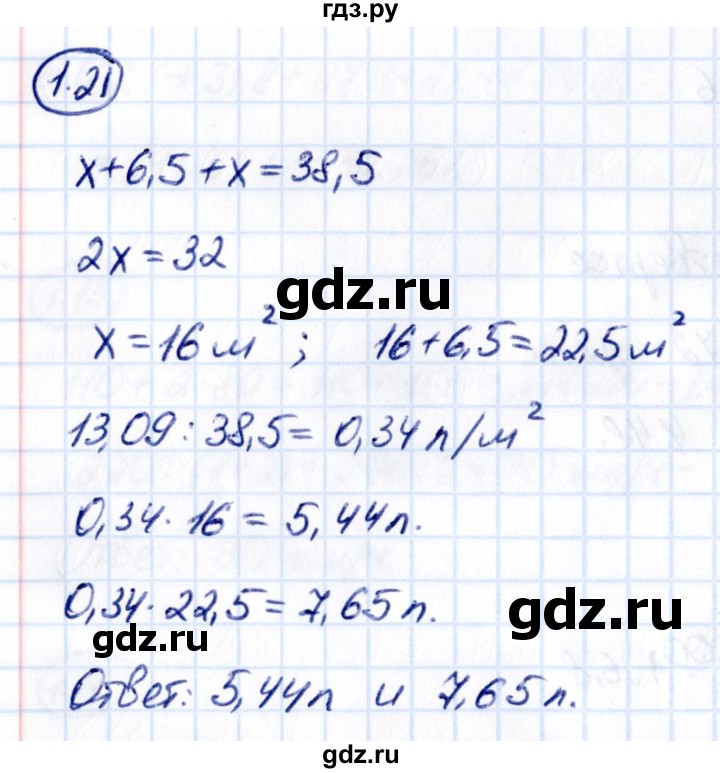 гдз.ру
1.21
x+6,5+x=38,5
2x=32
gdz.ru
x=16м²; 16+6,5=22,5м²
13,09:38,5=0,34л/м²
0,34·16=5,44л.
gdz.ru
0,34·22,5=7,65л.
gdz.ru
Ответ: 5,44л и 7,65л.
gdz.ru